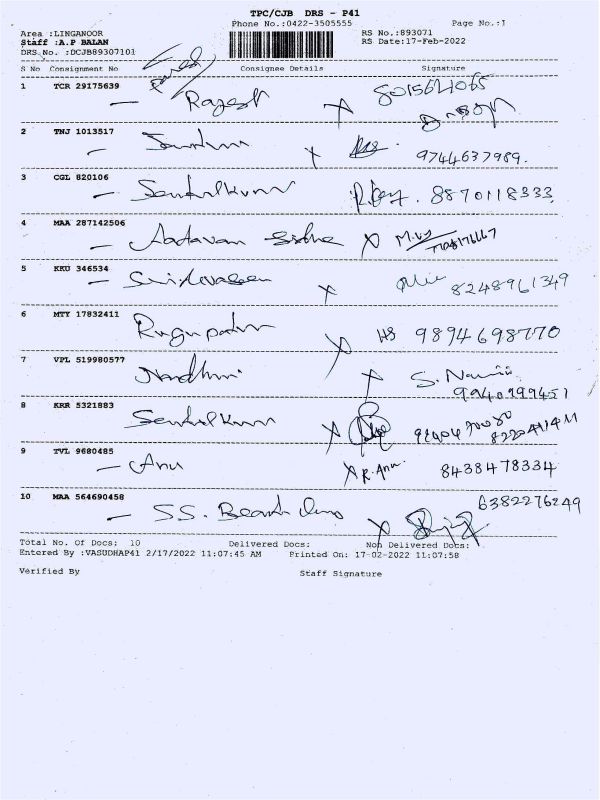 TPC/CJB DRS - P41
Phone No.:0422-3505555 Page No.:1
Area :LINGANOOR RS No.:893071
Staff :A.P BALAN RS Date:17-Feb-2022
DRS No. :DCJB89307101
S No Consignment No Consignee Details Signature
1 TCR 29175639 Rajesh
2 TNJ 1013517 9744637989.
3 CGL 820106 Senthilkumar 8870118333
4 MAA 287142506 Aadavan
5 KKU 346534 8248961349
6 MTY 17832411 9894698770
7 VPL 519980577 Nandhini S. Nandhini
9940999451
8 KRR 5321883 Senthilkumar
9 TVL 9680485 Anu R. Anu 8438478334
10 MAA 564690458 SS. 6382276249
Total No. Of Docs: 10 Delivered Docs: Non Delivered Docs:
Entered By :VASUDHAP41 2/17/2022 11:07:45 AM Printed On: 17-02-2022 11:07:58
Verified By Staff Signature